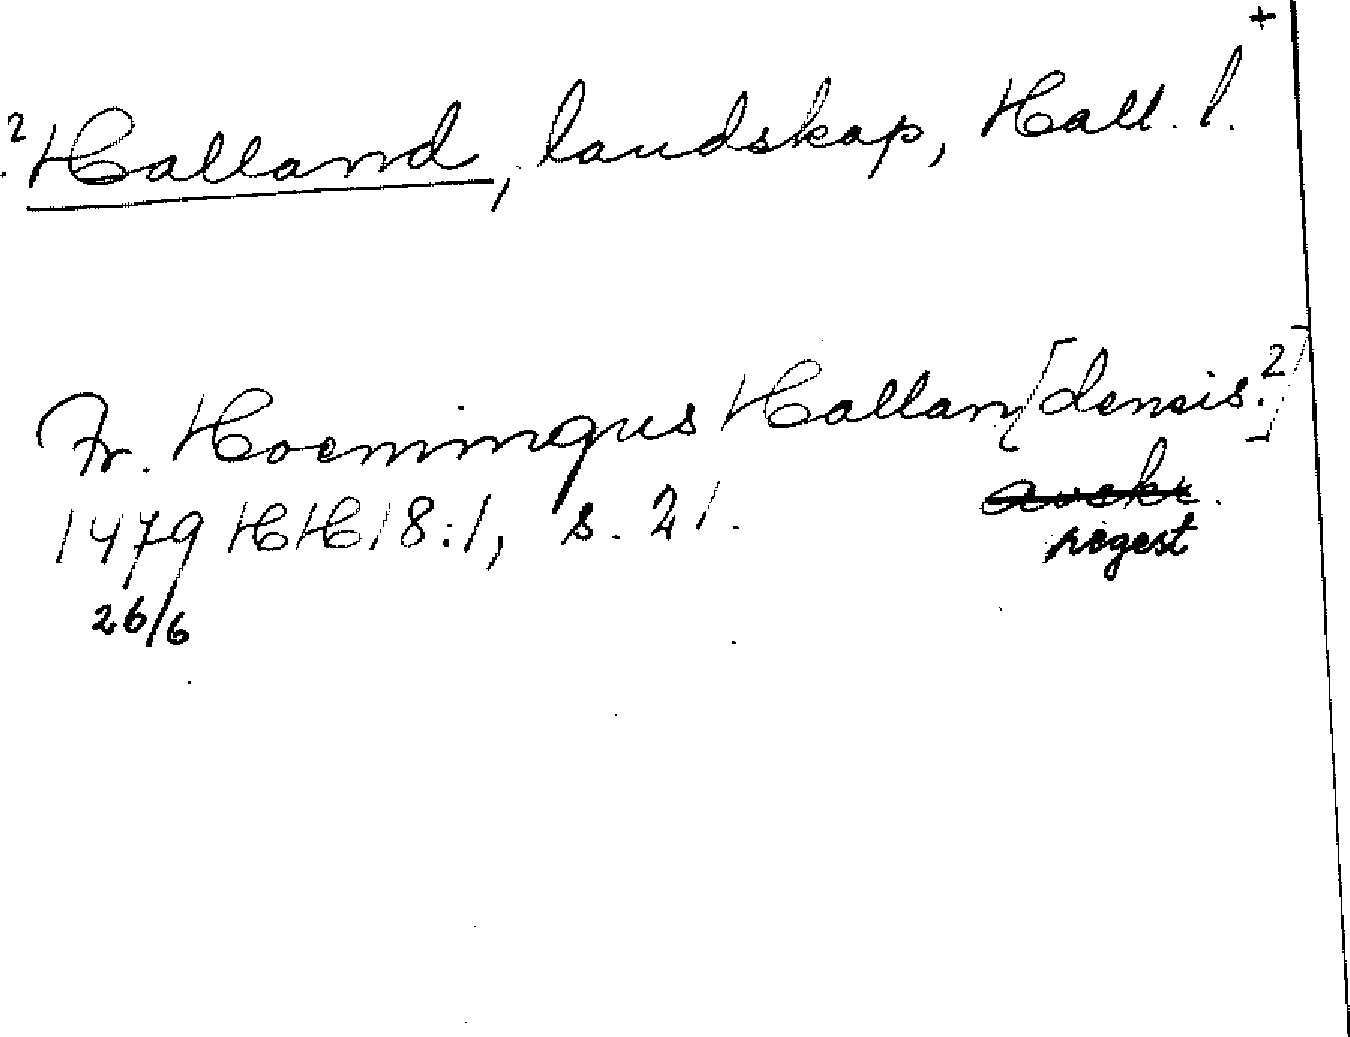 +
? Halland, landskap, Hall. l.
Fr. Hoemingus Hallan[densis.?]
1479 HH 18:1, s. 21. avskr.
26/6 regest